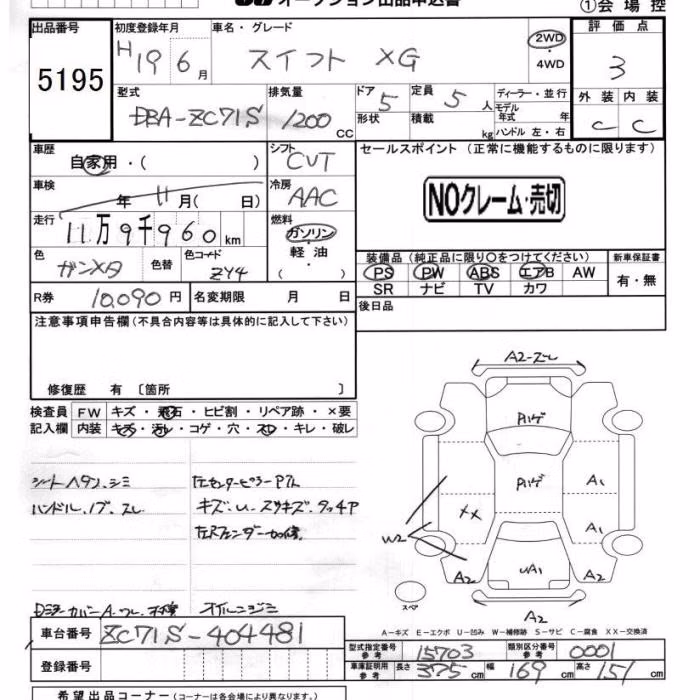 ①会場控
出品番号 初度登録年月 車名・グレード 評価点
5195 H19 6月 スイフト XG 2WD・4WD 3
型式 排気量 ドア 5 定員 5人 ディーラー・並行 外装 内装
DBA-ZC71S 1200CC 形状 積載 kg モデル年式 年 C C
ハンドル 左・右
車歴 シフト セールスポイント (正常に機能するものに限ります)
自家用・( ) CVT
車検 年 11月( 日) 冷房 AAC NOクレーム・売切
走行 11万9千960km 燃料 ガソリン・軽油・( )
色 ガンメタ 色替 色コード ZY4 装備品 (純正品に限り○をつけてください) 新車保証書
PS PW ABS エアB AW 有・無
R券 10,090円 名変期限 月 日 SR ナビ TV カワ
後日品
注意事項申告欄(不具合内容等は具体的に記入して下さい)
修復歴 有〔箇所 〕
検査員 FW キズ・飛石・ヒビ割・リペア跡・×要
記入欄 内装 キズ・汚レ・コゲ・穴・スレ・キレ・破レ
シートヘタリ、シミ
ハンドル、ノブ、スレ
左センターピラーP穴
キズ・U・スリキズ・タッチP
オイルニジミ
A2-ズレ
Pハゲ
Pハゲ A1
XX A1
W2
A2 UA1 A2
スペア A2
A-キズ E-エクボ U-凹み W-補修跡 S-サビ C-腐食 XX-交換済
車台番号 ZC71S-404481
型式指定番号 参考 15703 類別区分番号 参考 0001
登録番号 車庫証明用 参考 長さ 375cm 幅 169cm 高さ 151cm
希望出品コーナー(コーナーは各会場により異なります。)